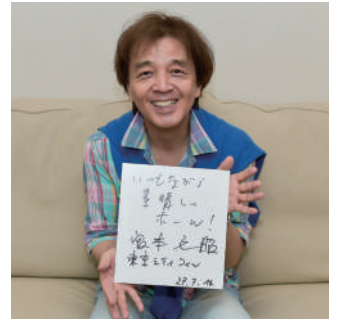 いつもながら
素晴しい
ホール!
東京シティフィル